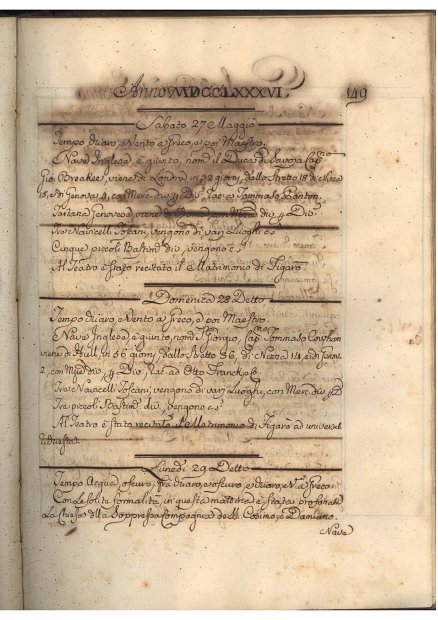 Anno MDCCLXXXVI.
149
Sabato 27 Maggio
Tempo chiaro, e Vento a Greco, e poi Maestro.
Nave Inglese, è giunto, nom.ᵗᵒ il Duca di Savoja, Cap.ⁿᵒ
Gio. Breakee, viene di Londra in 32 giorni, dallo Stretto 18, di Nizza
15, e di Genova 4, con Merc. div.
Tartana Genovese, viene di con Merc. div. 4 Div.ⁱ
Tre Navicelli Toscani, vengono di varj Luoghi c. s.
Cinque piccoli Bastim.ⁱ div., vengono c. s.
Al Teatro è stato recitato il Matrimonio di Figaro.
Domenica 28 Detto
Tempo chiaro, e Vento a Greco, e poi Maestro.
Nave Inglese, è giunto, nom.ᵗᵒ S. Giorgio, Cap.ⁿᵒ Tommaso
viene di Hull, in 66 giorni, dallo Stretto 36, di Nizza 14, e di Genova
2, con Otto Franck, e
Tre Navicelli Toscani, vengono di varj Luoghi, con Merc. div.
Tre piccoli Bastim.ⁱ div., vengono c. s.
Al Teatro è stato recitato il Matrimonio di Figaro ad universal
richiesta.
Lunedì 29 Detto
Tempo Acqua, oscuro, frà chiaro, e oscuro, e chiaro, e V.ᵗᵒ a Greco.
Con le solite formalità, in questa mattina è stata profanata
la Chiesa della Soppressa Compagnia de SS. Cosimo, e Damiano.
Nave